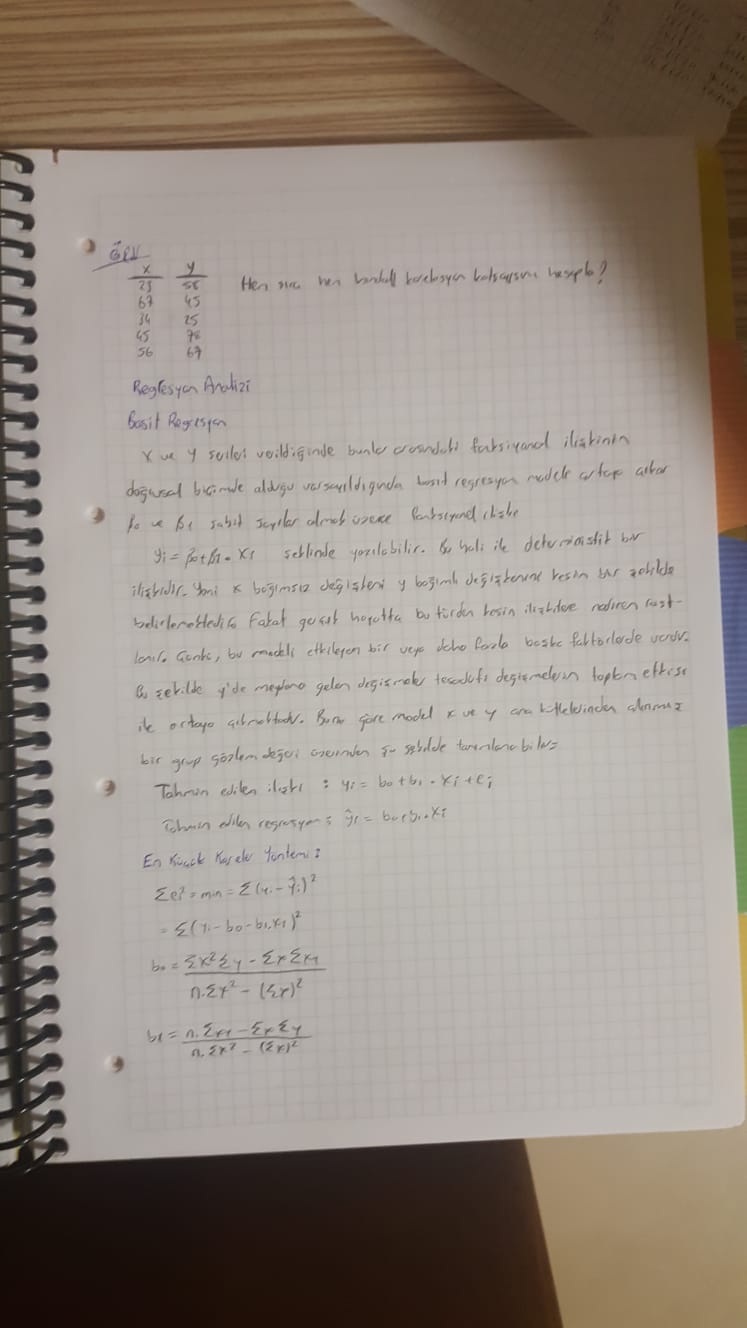 ÖRN
x y
23 58
67 45
34 25
45 78
56 67
Hem sıra hem kendall korelasyon katsayısını hesapla?
Reglesyon Analizi
Basit Regresyon
X ve Y serileri verildiğinde bunlar arasındaki fonksiyonel ilişkinin
doğrusal biçimde olduğu varsayıldığında basit regresyon modeli ortaya çıkar
β0 ve β1 sabit sayılar olmak üzere fonksiyonel ilişki
yi = β0 + β1 . xi şeklinde yazılabilir. Bu hali ile deterministik bir
ilişkidir. Yani x bağımsız değişkeni y bağımlı değişkenini kesin bir şekilde
belirlemektedir. Fakat gerçek hayatta bu türden kesin ilişkilere nadiren rast-
lanır. Çünkü, bu modeli etkileyen bir veya daha fazla başka faktörlerde vardır.
Bu şekilde y'de meydana gelen değişmeler tesadüfi değişmelerin toplam etkisi
ile ortaya çıkmaktadır. Buna göre model x ve y ana kütlelerinden alınmış
bir grup gözlem değeri üzerinden şu şekilde tanımlanabilir=
Tahmin edilen ilişki : yi = b0 + b1 . xi + ei
Tahmin edilen regresyon : ŷi = b0 + b1 . xi
En Küçük Kareler Yöntemi :
Σei² = min = Σ(yi - ŷi)²
= Σ(yi - b0 - b1.xi)²
b0 = Σx²Σy - ΣxΣxy
n.Σx² - (Σx)²
b1 = n.Σxy - ΣxΣy
n.Σx² - (Σx)²